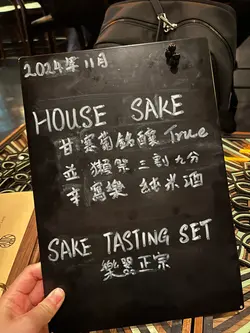 2024年11月
HOUSE SAKE
甘 寒菊銘醸 True
並 獺祭 三割九分
辛 寫樂 純米酒
SAKE TASTING SET
樂器正宗